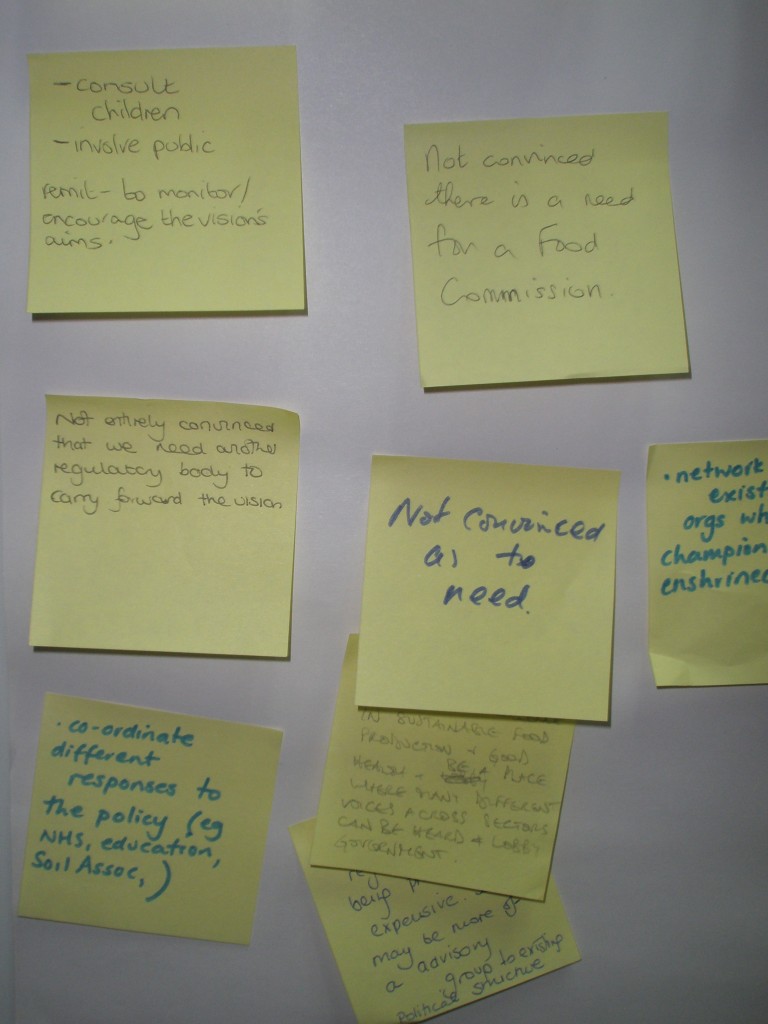 - consult
children
- involve public
remit - to monitor/
encourage the vision's
aims.
Not convinced
there is a need
for a Food
Commission.
Not entirely convinced
that we need another
regulatory body to
carry forward the vision
Not convinced
as to
need.
• network
exist
orgs wh
champion
enshrined
• co-ordinate
different
responses to
the policy (eg
NHS, education,
Soil Assoc,)
IN SUSTAINABLE FOOD
PRODUCTION + GOOD
HEALTH + BE A PLACE
WHERE MANY DIFFERENT
VOICES ACROSS SECTORS
CAN BE HEARD + LOBBY
GOVERNMENT.
being
expensive.
may be more of
a advisory
group to existing
political structure